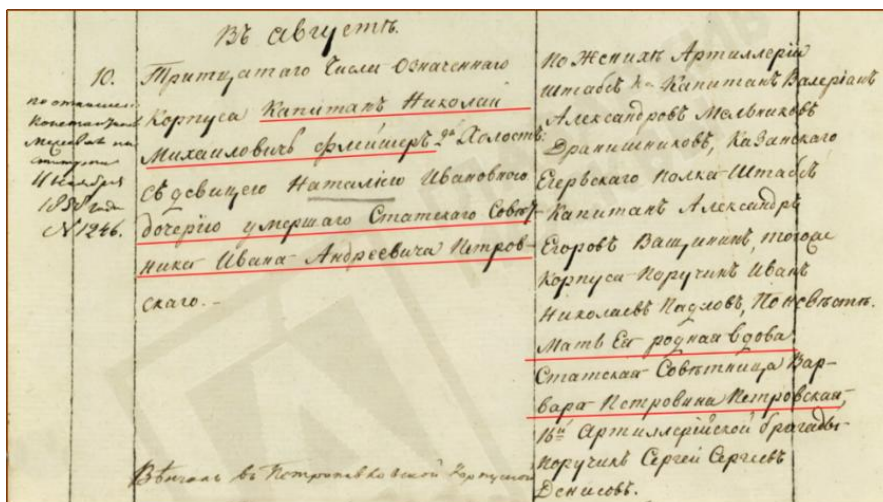 Въ августѣ.
10.
Тритцатаго Числа Означеннаго
Корпуса Капитанъ Николай
Михайловичь Флейшеръ Холостъ
съ девицею Наталіею Ивановною
дочерію умершаго Статскаго Совѣт-
ника Ивана Андреевича Петров-
скаго.-
1858 года
№ 1246.
Вѣнчалъ въ Петропавловской Корпусной
по Женихѣ Артиллеріи
Штабсъ Капитанъ Валеріанъ
Александровъ Мельниковъ
Дранишниковъ, Казанскаго
Егерьскаго полка Штабсъ
Капитанъ Александръ
Егоровъ Ващининъ, тогоже
Корпуса Поручикъ Иванъ
Николаевъ Павловъ, По невѣстѣ.
Мать Ея родная вдова
Статская Совѣтница Вар-
вара Петровина Петровская,
16й Артиллерійской бригады
Поручикъ Сергей Сергеевъ
Денисовъ.